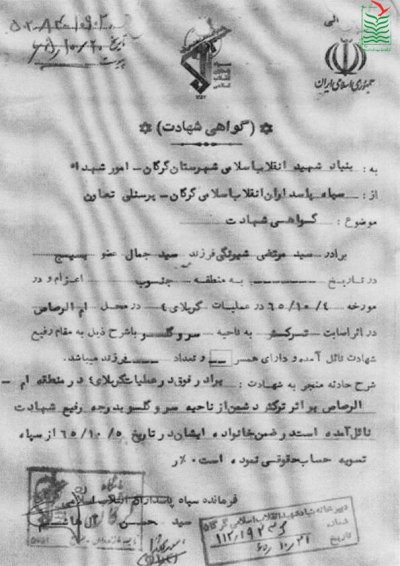 الی
جمهوری اسلامی ایران
سپاه
پاسداران
انقلاب
اسلامی
تاریخ ۶۵/۱۰/۲۰
(گواهی شهادت)
به: بنیاد شهید انقلاب اسلامی شهرستان گرگان - امور شهداء
از: سپاه پاسداران انقلاب اسلامی گرگان - پرسنلی تعاون
موضوع: گواهی شهادت
برادر سید مرتضی شیرنگی فرزند سید جمال عضو بسیج
در تاریخ به منطقه جنوب اعزام و در
مورخه ۶۵/۱۰/۴ در عملیات کربلای ۴ در محل ام الرصاص
در اثر اصابت ترکش به ناحیه سر و گلو باشرح ذیل به مقام رفیع
شهادت نائل آمده و دارای همسر و تعداد فرزند میباشد.
شرح حادثه منجر به شهادت: برادر فوق در عملیات کربلای ۴ در منطقه ام -
الرصاص بر اثر ترکش دشمن از ناحیه سر و گلو بدرجه رفیع شهادت
نائل آمده است در ضمن خانواده ایشان در تاریخ ۶۵/۱۰/۵ از سپاه
تسویه حساب حقوقی نموده است. ٪ر
فرمانده سپاه پاسداران انقلاب اسلامی
سید حسن
شماره
تاریخ ۶۵/۱۰/۲۱